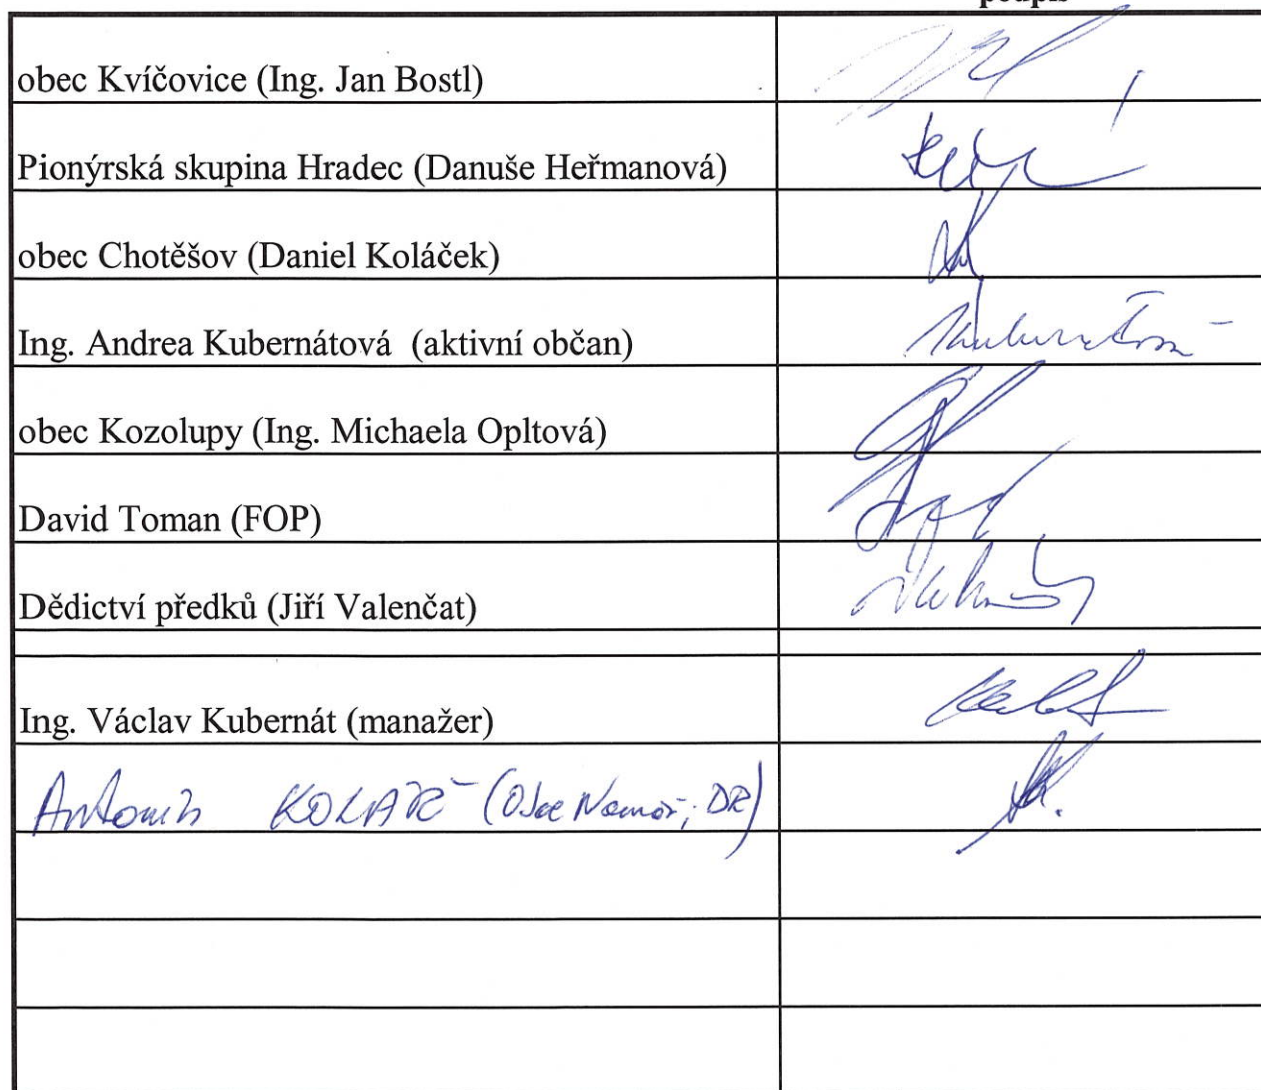 podpis
obec Kvíčovice (Ing. Jan Bostl)
Pionýrská skupina Hradec (Danuše Heřmanová)
obec Chotěšov (Daniel Koláček)
Ing. Andrea Kubernátová (aktivní občan)
obec Kozolupy (Ing. Michaela Opltová)
David Toman (FOP)
Dědictví předků (Jiří Valenčat)
Ing. Václav Kubernát (manažer)
Antonín KOLÁŘ (